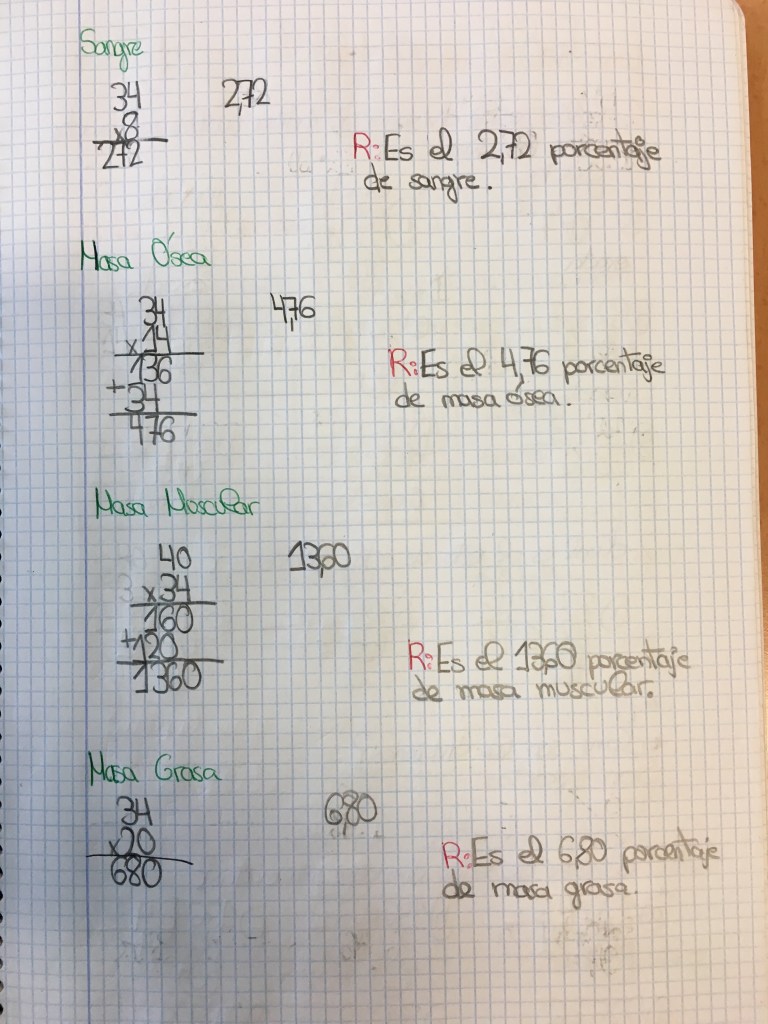 Sangre
34
2,72
x8
272
R:Es el 2,72 porcentaje
de sangre.
Masa Ósea
34
4,76
x14
136
+34
476
R:Es el 4,76 porcentaje
de masa ósea.
Masa Muscular
40
13,60
x34
160
+120
1360
R:Es el 13,60 porcentaje
de masa muscular.
Masa Grasa
34
6,80
x20
680
R:Es el 6,80 porcentaje
de masa grasa.